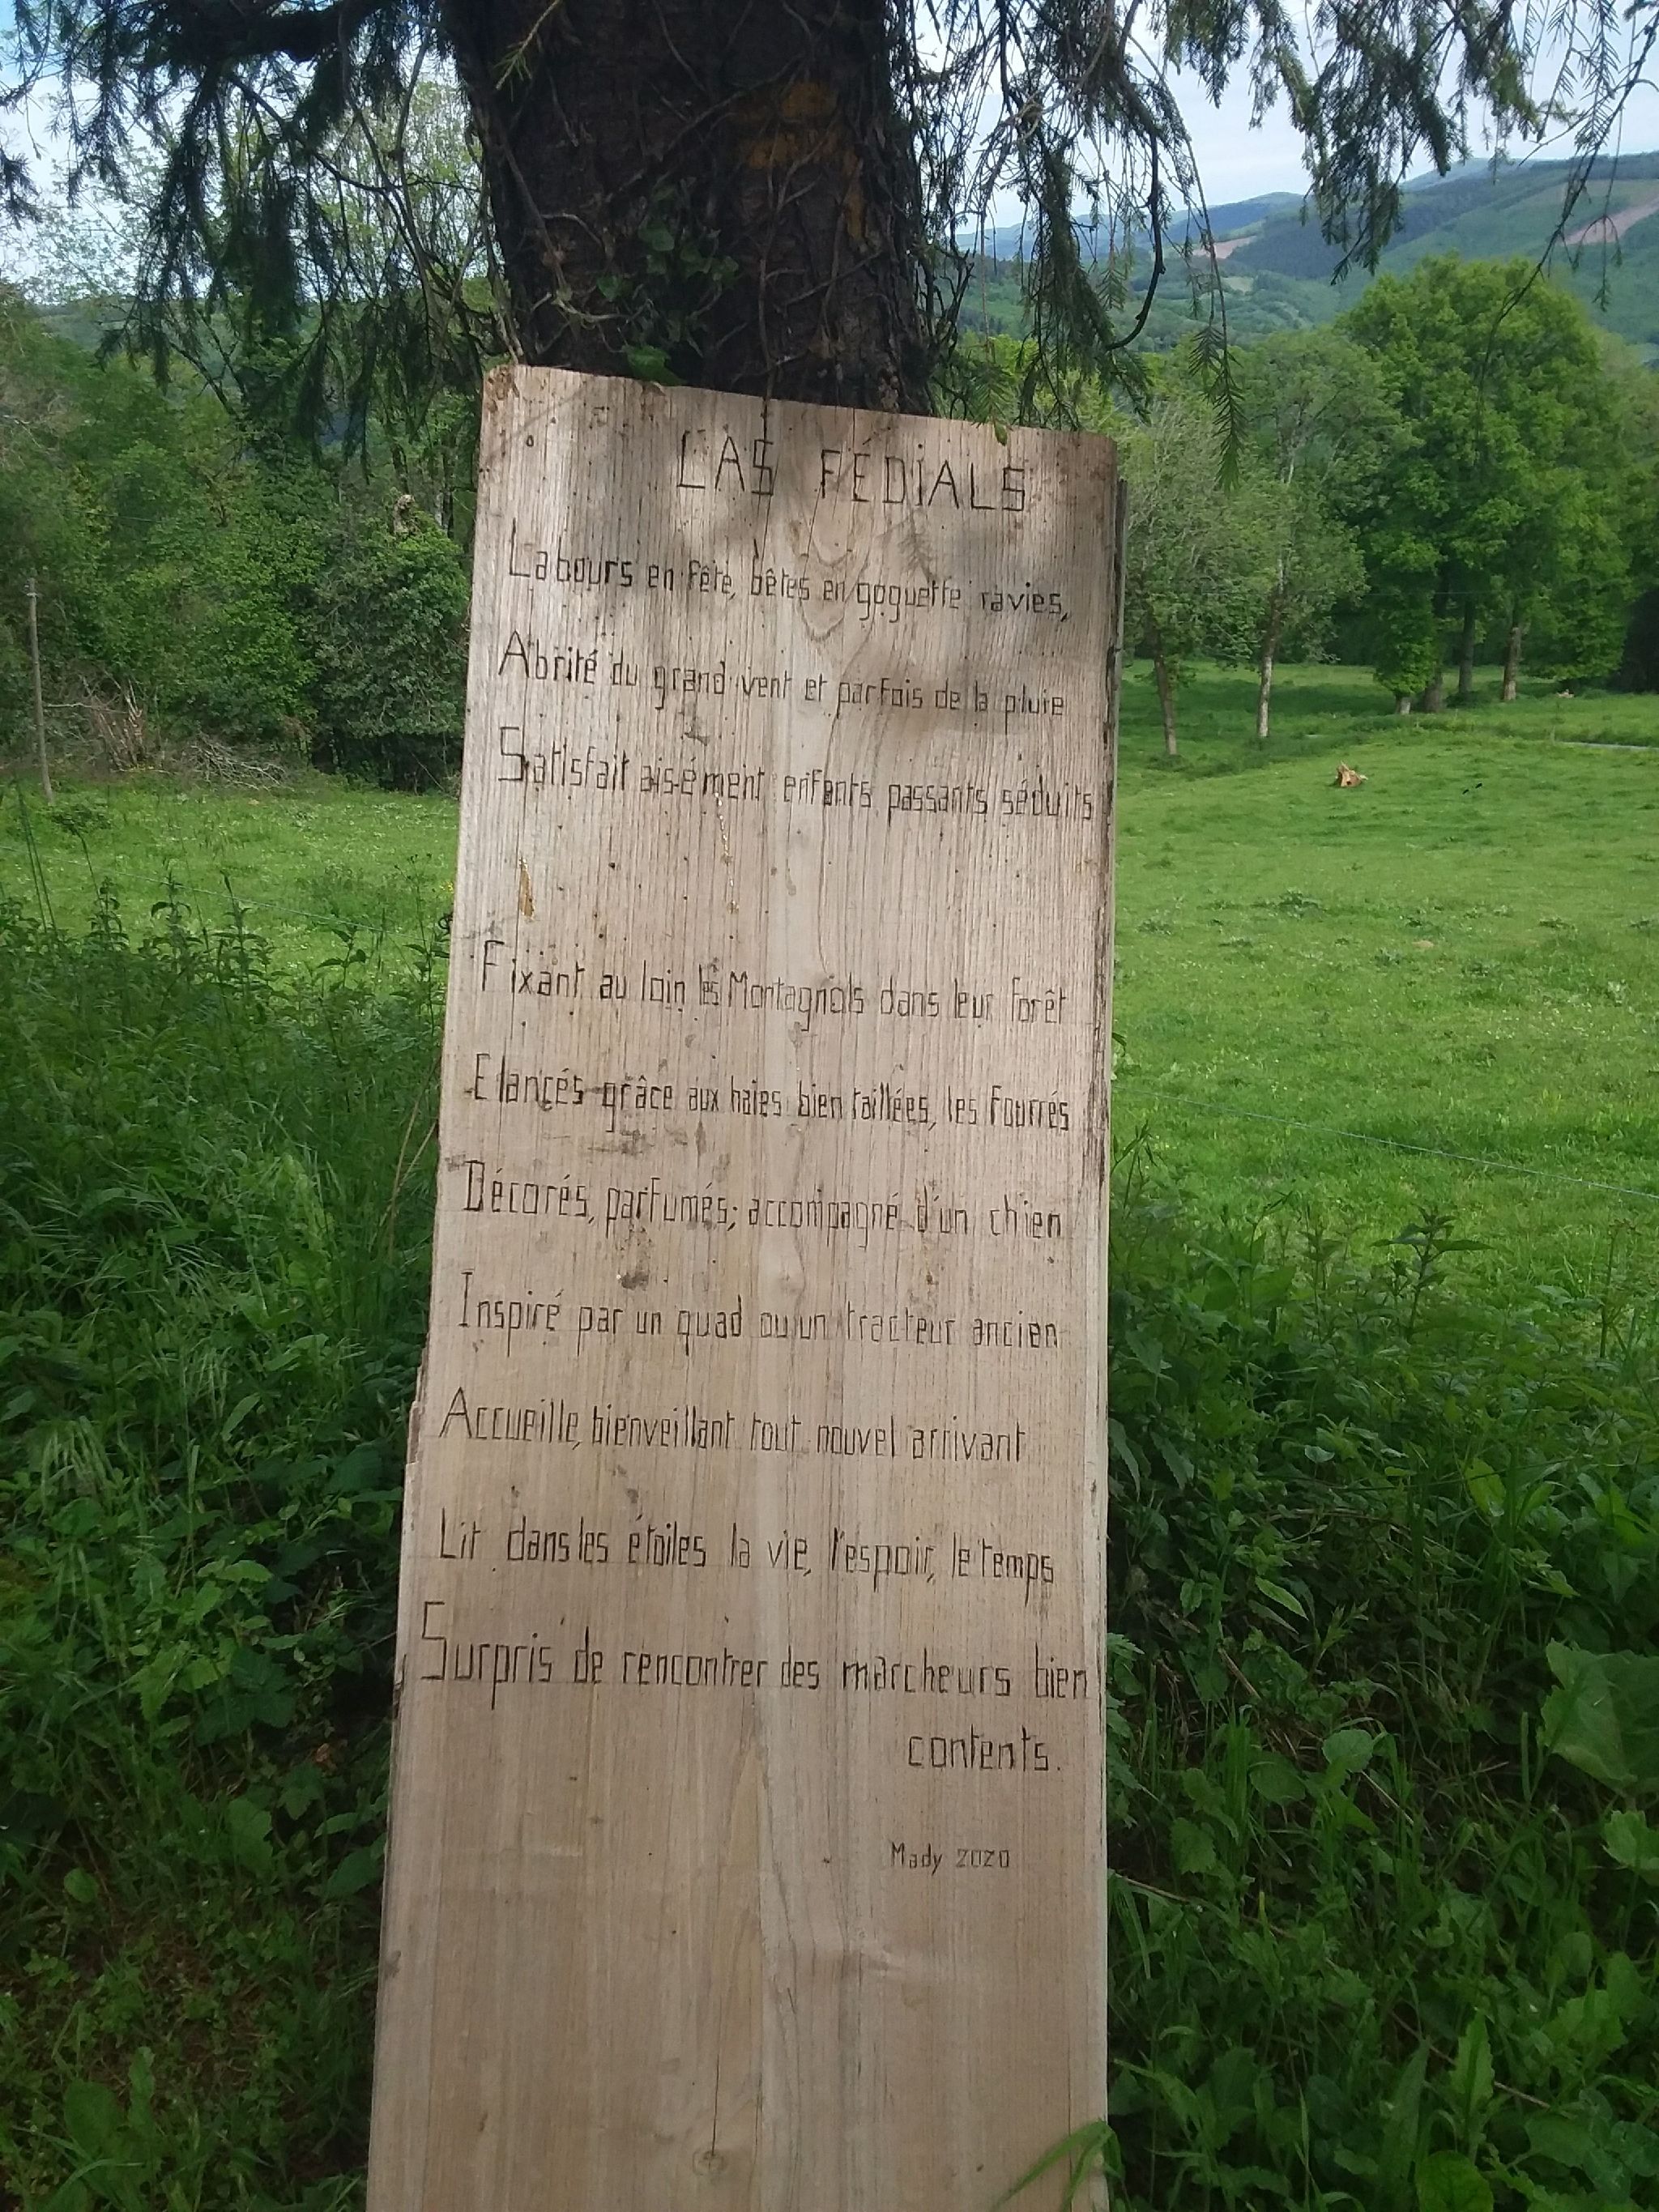 LAS FÉDIALS
Labours en fête, bêtes en goguette ravies,
Abrité du grand vent et parfois de la pluie
Satisfait aisément enfants passants séduits
Fixant au loin les Montagnols dans leur forêt
Elancés grâce aux haies bien taillées, les fourrés
Décorés, parfumés; accompagné d'un chien
Inspiré par un quad ou un tracteur ancien
Accueille, bienveillant tout nouvel arrivant
Lit dans les étoiles la vie, l'espoir, le temps
Surpris de rencontrer des marcheurs bien
contents.
Mady 2020